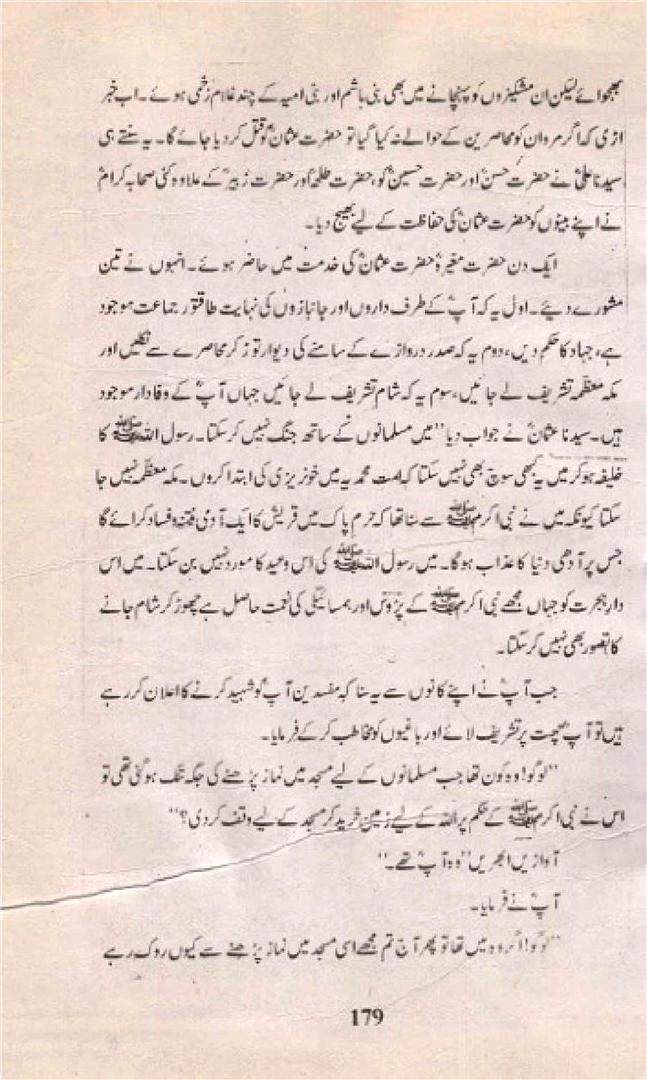 بھجوائے لیکن ان مشکیزوں کو پہنچانے میں بھی بنی ہاشم اور بنی امیہ کے چند غلام زخمی ہوئے۔ اب خبر
اڑی کہ اگر مروان کو محاصرین کے حوالے نہ کیا گیا تو حضرت عثانؓ کو قتل کر دیا جائے گا۔ یہ سنتے ہی
سیدنا علیؓ نے حضرت حسنؓ اور حضرت حسینؓ کو، حضرت طلحہؓ اور حضرت زبیرؓ کے علاوہ کئی صحابہ کرامؓ
نے اپنے بیٹوں کو حضرت عثمانؓ کی حفاظت کے لیے بھیج دیا۔
ایک دن حضرت مغیرہؓ حضرت عثمانؓ کی خدمت میں حاضر ہوئے۔ انہوں نے تین
مشورے دیئے۔ اول یہ کہ آپؓ کے طرف داروں اور جانبازوں کی نہایت طاقتور جماعت موجود
ہے، جہاد کا حکم دیں، دوم یہ کہ صدر دروازے کے سامنے کی دیوار توڑ کر محاصرے سے نکلیں اور
مکہ معظمہ تشریف لے جائیں، سوم یہ کہ شام تشریف لے جائیں جہاں آپؓ کے وفادار موجود
ہیں۔ سیدنا عثمانؓ نے جواب دیا ”میں مسلمانوں کے ساتھ جنگ نہیں کر سکتا۔ رسول اللہ ﷺ کا
خلیفہ ہو کر میں یہ کبھی سوچ بھی نہیں سکتا کہ امت محمدیہ میں خونریزی کی ابتدا کروں۔ مکہ معظمہ نہیں جا
سکتا کیونکہ میں نے نبی اکرم ﷺ سے سنا تھا کہ حرم پاک میں قریش کا ایک آدمی فتنہ و فساد کرائے گا
جس پر آدھی دنیا کا عذاب ہوگا۔ میں رسول اللہ ﷺ کی اس وعید کا مورد نہیں بن سکتا۔ میں اس
دار ہجرت کو جہاں مجھے نبی اکرم ﷺ کے پڑوس اور ہمسائیگی کی نعمت حاصل ہے چھوڑ کر شام جانے
کا تصور بھی نہیں کر سکتا۔
جب آپؓ نے اپنے کانوں سے یہ سنا کہ مفسدین آپؓ کو شہید کرنے کا اعلان کر رہے
ہیں تو آپؓ چھت پر تشریف لائے اور باغیوں کو مخاطب کر کے فرمایا۔
”لوگو! وہ کون تھا جب مسلمانوں کے لیے مسجد میں نماز پڑھنے کی جگہ تنگ ہو گئی تھی تو
اس نے نبی اکرم ﷺ کے حکم پر اللہ کے لیے زمین خرید کر مسجد کے لیے وقف کر دی؟“
آوازیں ابھریں ”وہ آپؓ تھے۔“
آپؓ نے فرمایا۔
”لوگو! اگر وہ میں تھا تو پھر آج تم مجھے اسی مسجد میں نماز پڑھنے سے کیوں روک رہے
179